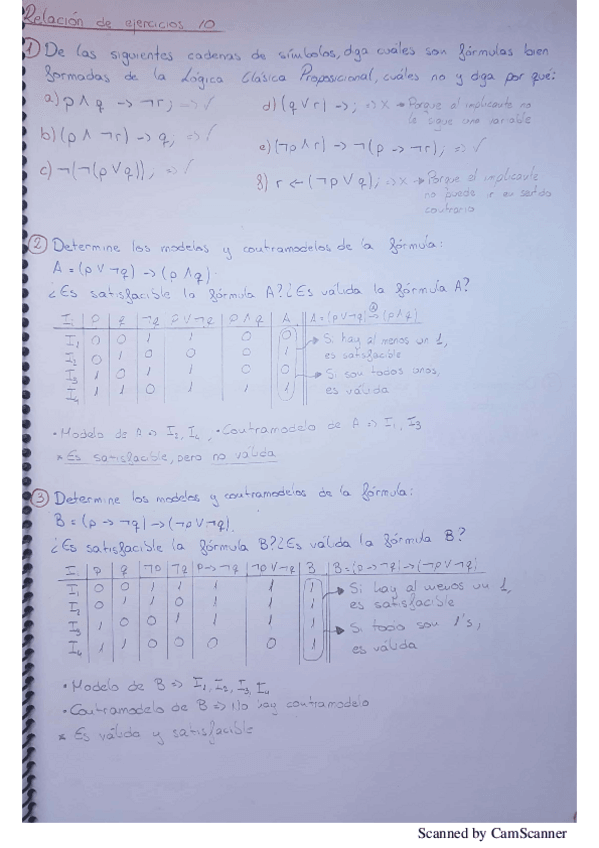 Relación de ejercicios 10
1) De las siguientes cadenas de símbolos, diga cuáles son fórmulas bien
formadas de la Lógica Clásica Proposicional, cuáles no y diga por qué:
a) p ∧ q -> ¬r; => ✓
d) (q ∨ r) ->; => x -> Porque al implicante no
le sigue una variable
b) (p ∧ ¬r) -> q; => ✓
e) (¬p ∧ r) -> ¬(p -> ¬r); => ✓
c) ¬(¬(p ∨ q)); => ✓
f) r <- (¬p ∨ q); => x -> Porque el implicante
no puede ir en sentido
contrario
2 Determine los modelos y contramodelos de la fórmula:
A = (p ∨ ¬q) -> (p ∧ q)
¿Es satisfacible la fórmula A? ¿Es válida la fórmula A?
I p q ¬q p ∨ ¬q p ∧ q A A = (p ∨ ¬q) -> (p ∧ q)
I1 0 0 1 1 0 0 Si hay al menos un 1,
I2 0 1 0 0 0 1 es satisfacible
I3 1 0 1 1 0 0 Si son todos unos,
I4 1 1 0 1 1 1 es válida
· Modelo de A => I2, I4 · Contramodelo de A => I1, I3
* Es satisfacible, pero no válida
3 Determine los modelos y contramodelos de la fórmula:
B = (p -> ¬q) -> (¬p ∨ ¬q).
¿Es satisfacible la fórmula B? ¿Es válida la fórmula B?
I p q ¬p ¬q p -> ¬q ¬p ∨ ¬q B B = (p -> ¬q) -> (¬p ∨ ¬q)
I1 0 0 1 1 1 1 1 Si hay al menos un 1,
I2 0 1 1 0 1 1 1 es satisfacible
I3 1 0 0 1 1 1 1 Si todo son 1's,
I4 1 1 0 0 0 0 1 es válida
· Modelo de B => I1, I2, I3, I4
· Contramodelo de B => No hay contramodelo
* Es válida y satisfacible
Scanned by CamScanner